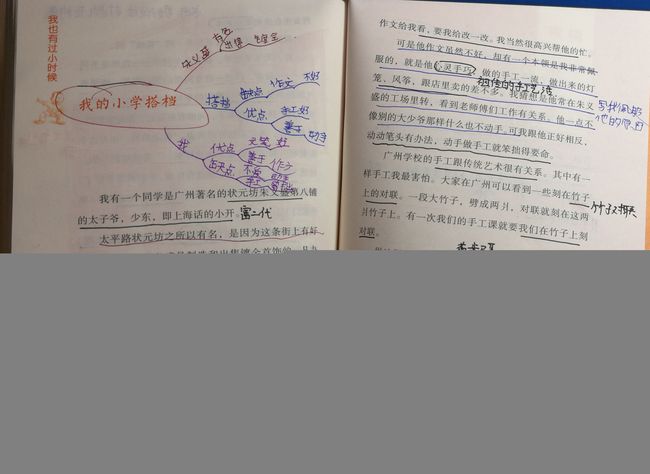 我也有过小时候
我的小学搭档
朱义盛
有名
出售
搭档
缺点
作文
不好
优点
手工好
善于
动手
我
优点
文笔
好
善于
作文
缺点
不善
手工
我有一个同学是广州著名的状元坊朱义盛第八铺
的太子爷，少东，即上海话的小开。富二代
太平路状元坊之所以有名，是因为这条街上有好
作文给我看，要我给改一改。我当然很高兴帮他的忙。
可是他作文虽然不好，却有一个本领是我非常佩
服的，就是他心灵手巧，做的手工一流，做出来的灯
笼、风筝，跟店里卖的差不多。我猜想是他常在朱义
盛的工场里转，看到老师傅们工作有关系。他一点不
像别的大少爷那样什么也不动手。可我跟他正好相反，
动动笔头有办法，动手做手工就笨拙得要命。
写我佩服
他的原因
广州学校的手工跟传统艺术很有关系。其中有一
样手工我最害怕。大家在广州可以看到一些刻在竹子
上的对联。一段大竹子，劈成两爿，对联就刻在这两
爿竹子上。有一次我们的手工课就要我们在竹子上刻
对联。
竹子对联